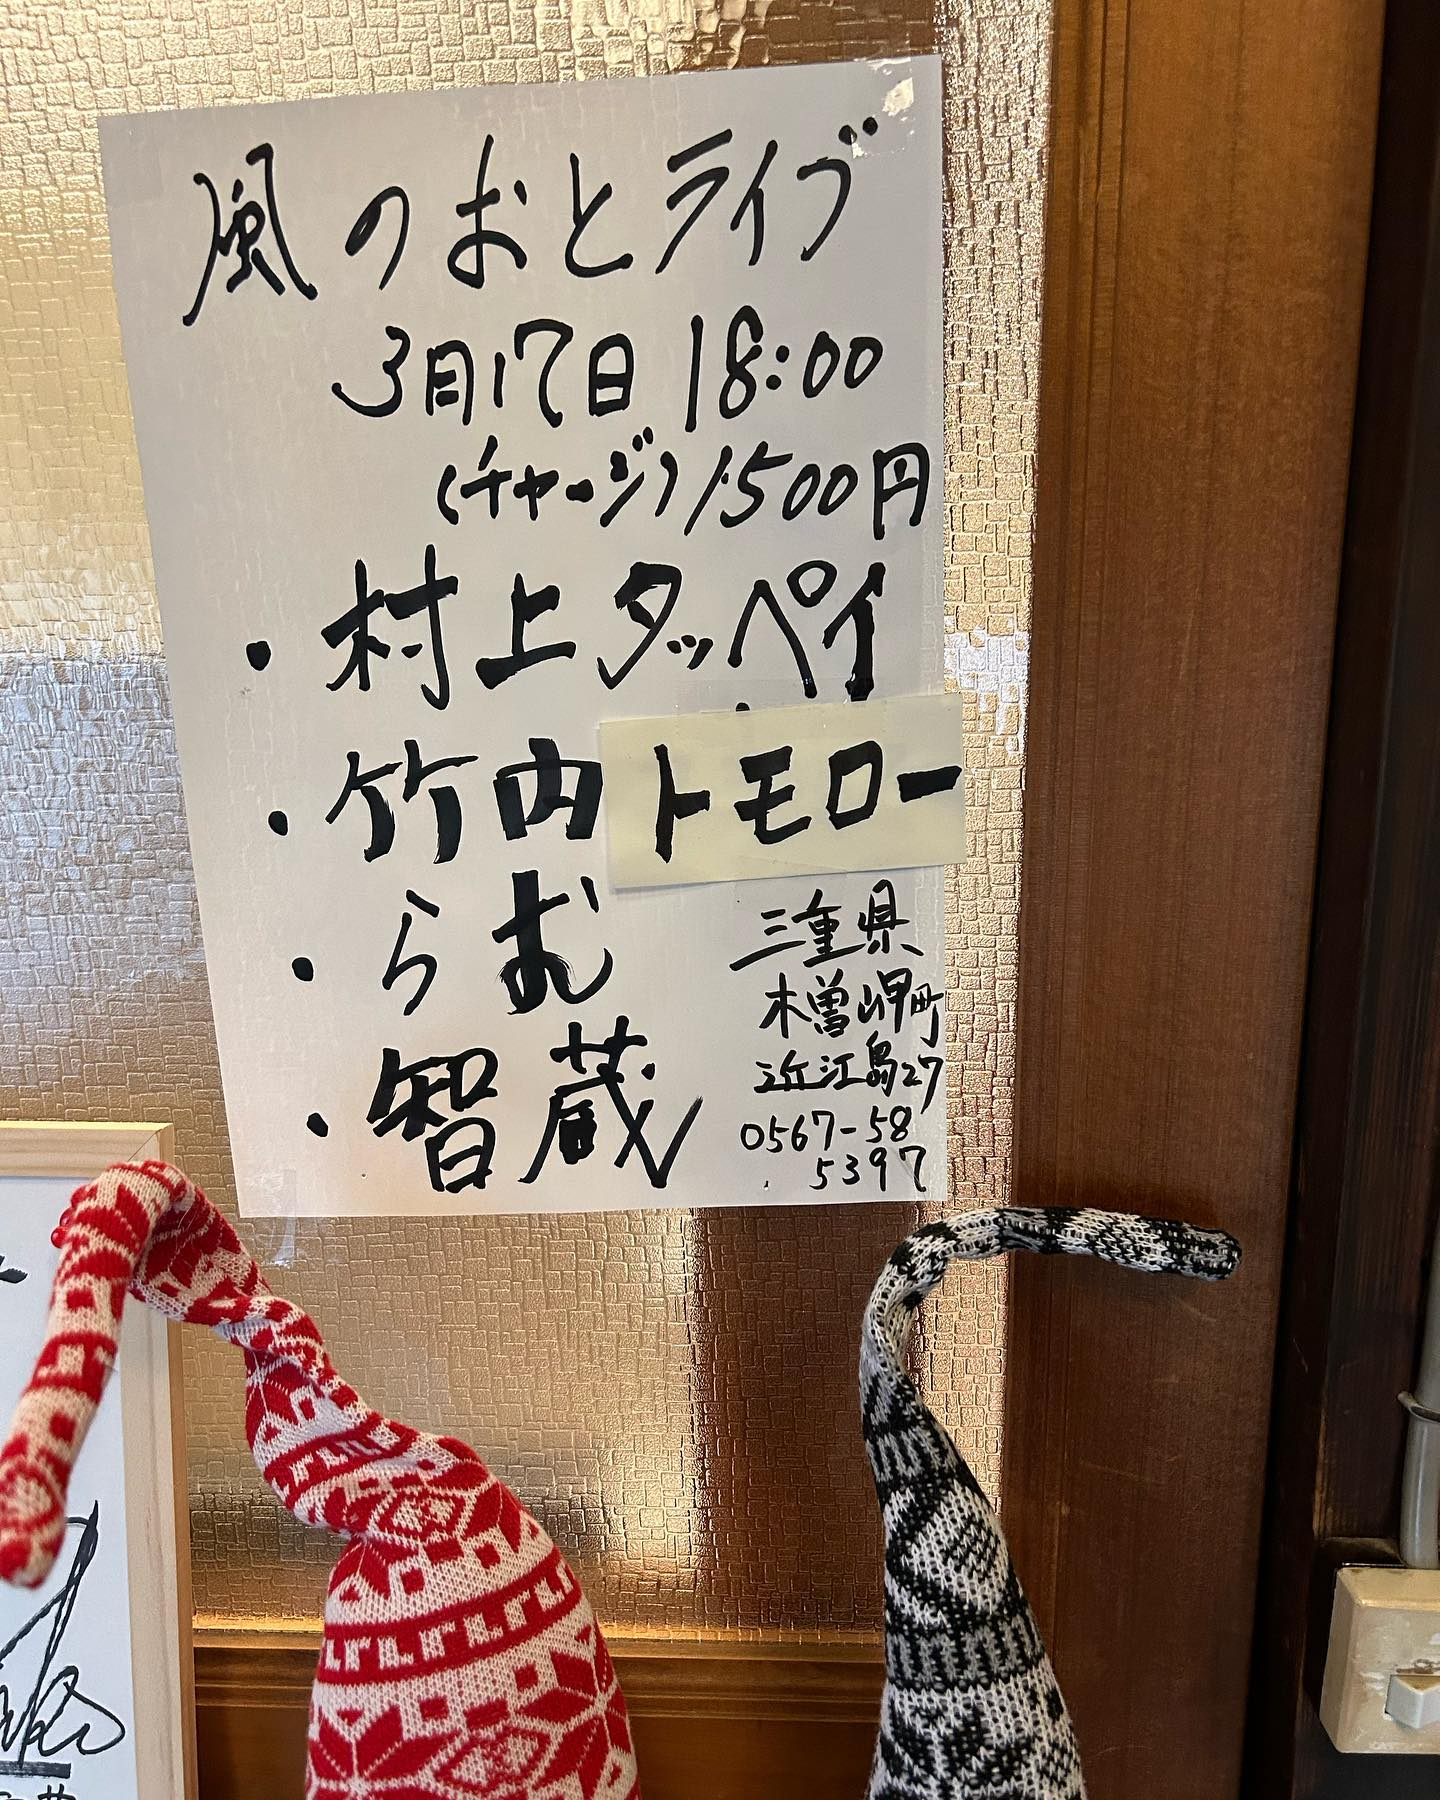 風のおとライブ
3月17日 18:00
(チャージ) 1500円
・村上タッペイ
・竹内トモロー
・らむ
・智蔵
三重県
木曽岬町
近江島27
0567-58
5397